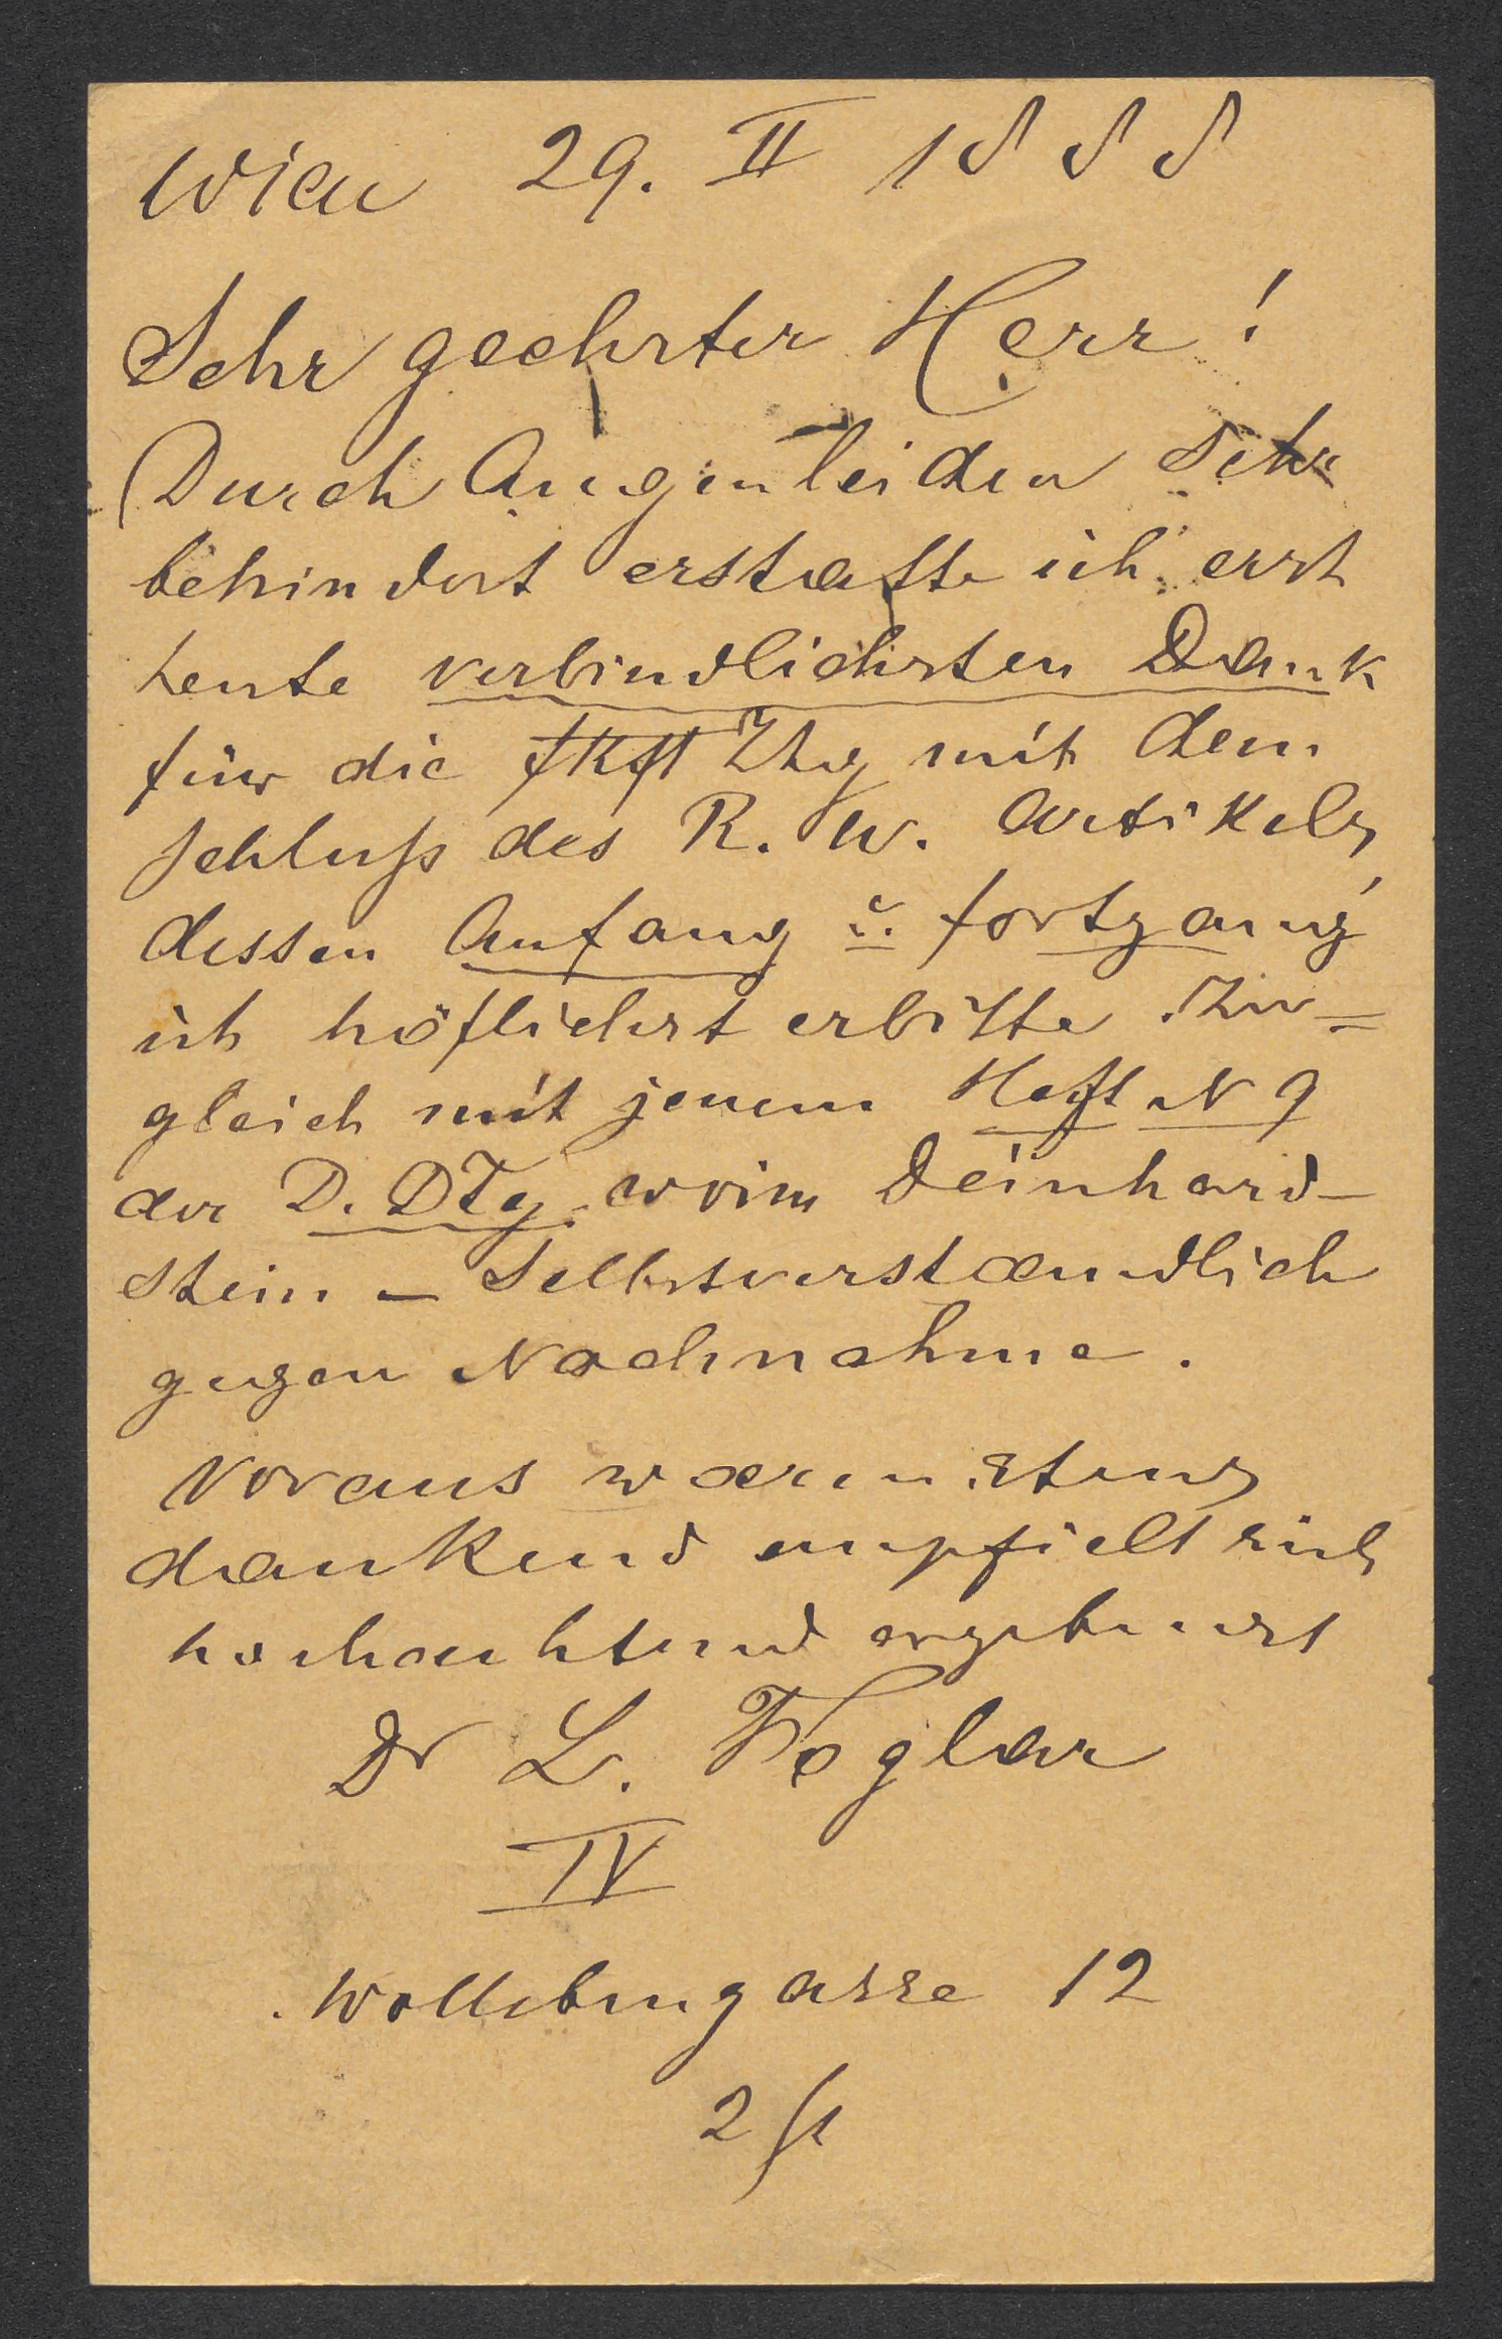 Wien 29. II 1888
Sehr geehrter Herr!
Durch Augenleiden sehr
behindert erstatte ich erst
heute verbindlichsten Dank
für die fkft Ztg mit dem
Schluß des R. W. Artikels,
dessen Anfang u. fortgang
ich höflichst erbitte. Zu=
gleich mit jenem Heft N 9
der D. Dtg. worin Deinhard-
stein - Selbstverstaendlich
gegen Nachnahme.
Voraus waermstens
dankend empfielt sich
hochachtend ergebenst
Dr L. Foglar
IV
Wollebengasse 12
2 St